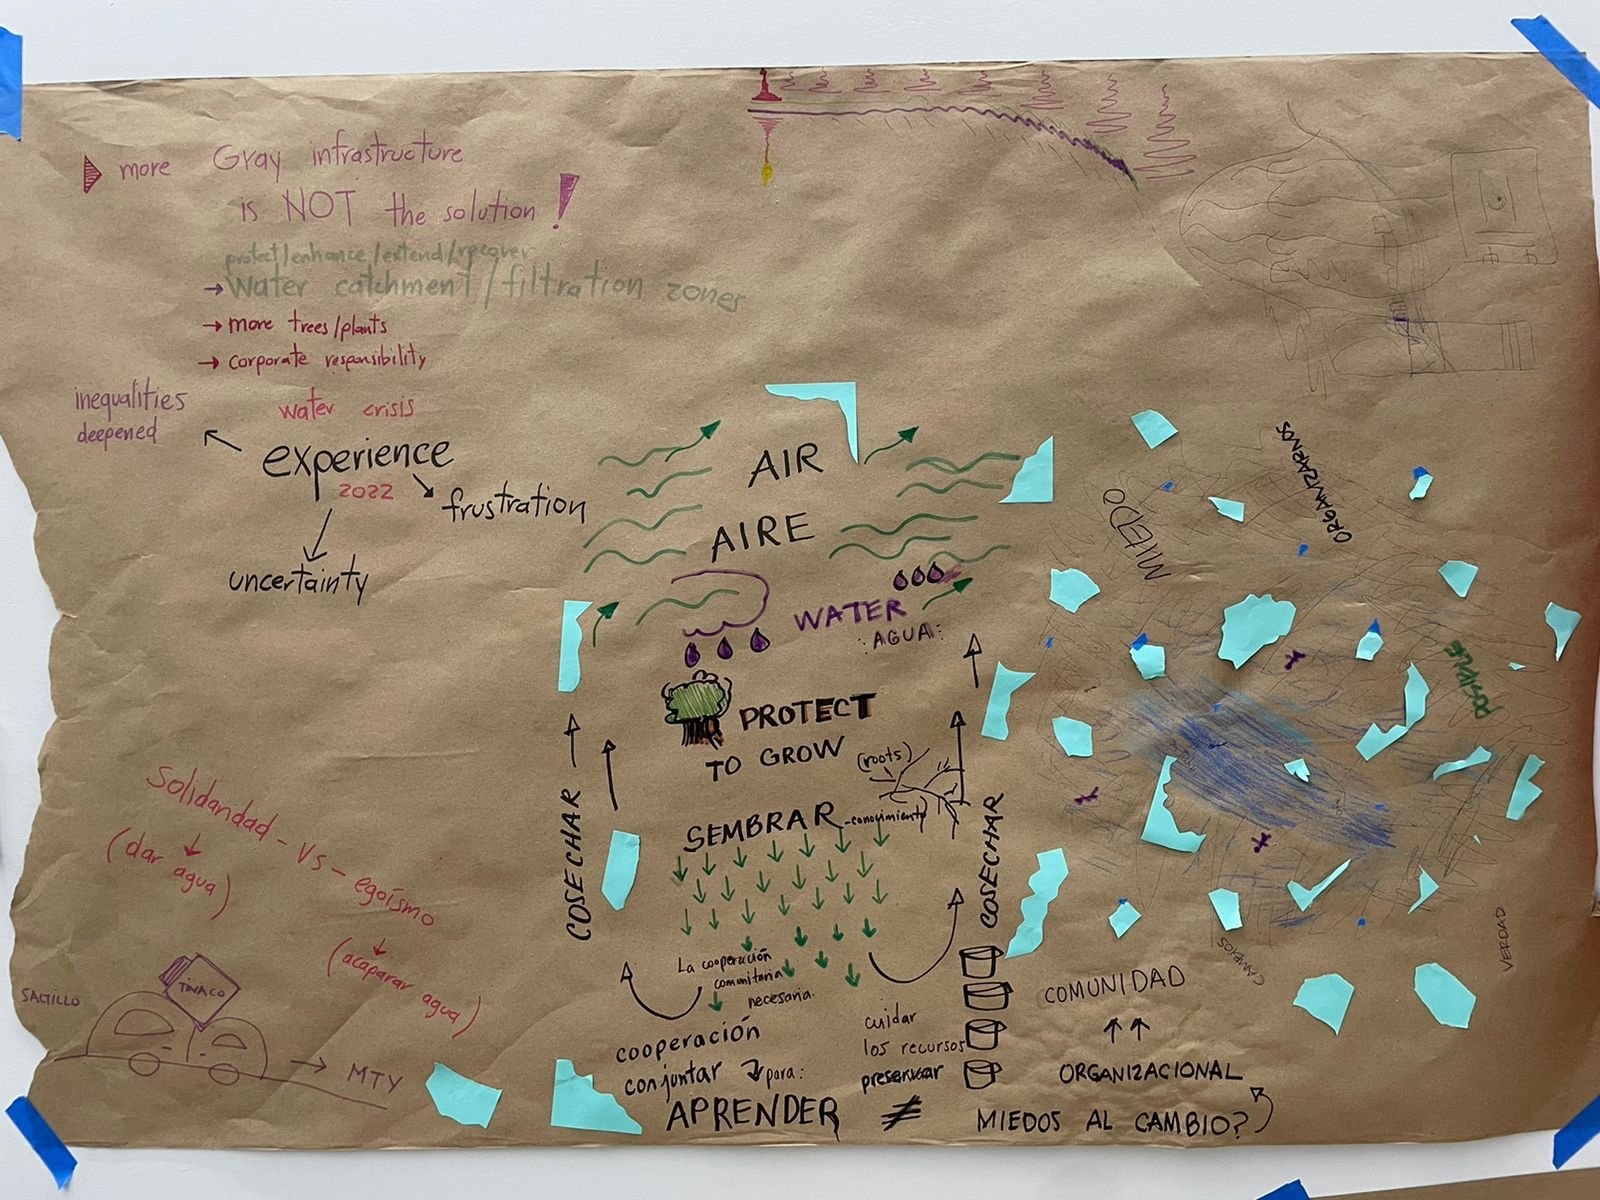 more Gray infrastructure
is NOT the solution!
protect/enhance/extend/recover
→ Water catchment/filtration zones
→ more trees/plants
→ corporate responsibility
inequalities
deepened
water crisis
experience
2022
frustration
uncertainty
Solidaridad - Vs - egoísmo
(dar agua)
(acaparar agua)
SALTILLO
TINACO
→ MTY
AIR
AIRE
WATER
AGUA
PROTECT
TO GROW
(roots)
SEMBRAR - conocimiento
COSECHAR
COSECHAR
La cooperación
comunitaria
necesaria.
cooperación
conjuntar para:
APRENDER ≠ MIEDOS AL CAMBIO?
cuidar
los recursos
preservar
COMUNIDAD
↑↑
ORGANIZACIONAL
MIEDO
ORGANIZARNOS
POSIBLE
CAMBIOS
VERDAD